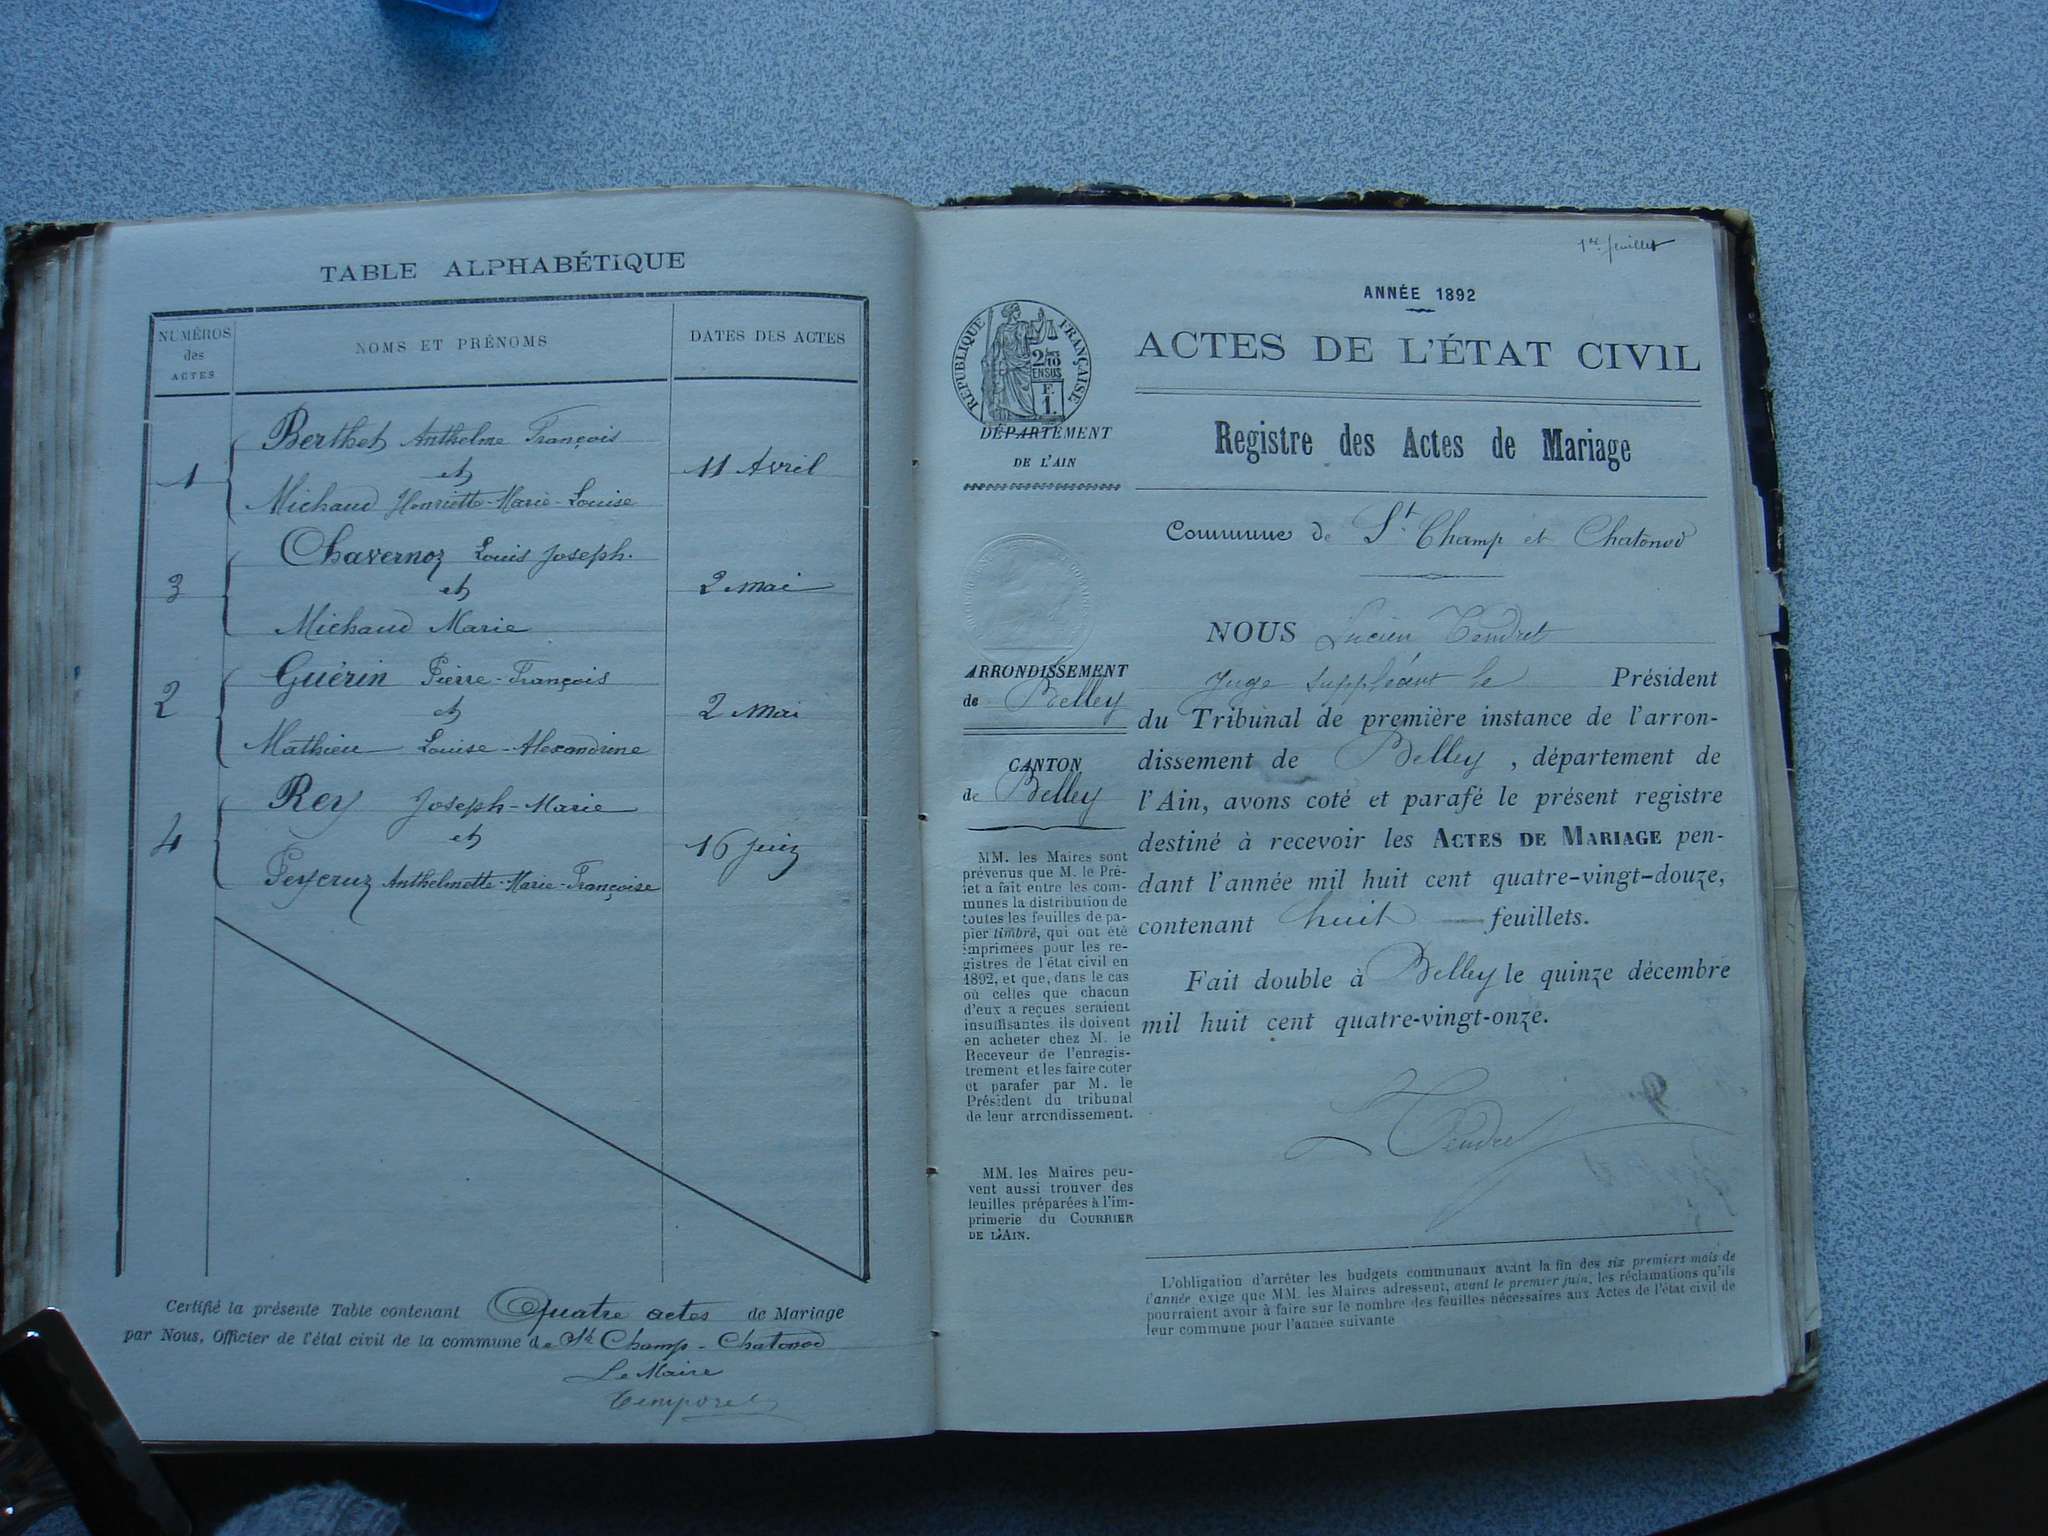 TABLE ALPHABÉTIQUE
NUMÉROS
des
ACTES
NOMS ET PRÉNOMS
DATES DES ACTES
Berthet Anthelme François
1 et 11 Avril
Michaud Henriette-Marie-Louise
Chavernoz Louis Joseph.
3 et 2 mai
Michaud Marie
Guérin Pierre-François
2 et 2 Mai
Mathieu Louise-Alexandrine
Rey Joseph-Marie
4 et 16 juin
Peycruz Anthelmette-Marie-Françoise
Certifié la présente Table contenant Quatre actes de Mariage
par Nous, Officier de l'état civil de la commune de St Champ-Chatonod
Le Maire
Temporel
1er feuillet
ANNÉE 1892
ACTES DE L'ÉTAT CIVIL
RÉPUBLIQUE FRANÇAISE
2/10
EN SUS
F.
1.
DÉPARTEMENT
DE L'AIN
Registre des Actes de Mariage
Commune de St Champ et Chatonod
ARRONDISSEMENT
de Belley
CANTON
de Belley
MM. les Maires sont
prévenus que M. le Pré-
fet a fait entre les com-
munes la distribution de
toutes les feuilles de pa-
pier timbré, qui ont été
imprimées pour les re-
gistres de l'état civil en
1892, et que, dans le cas
où celles que chacun
d'eux a reçues seraient
insuffisantes, ils doivent
en acheter chez M. le
Receveur de l'enregis-
trement et les faire coter
et parafer par M. le
Président du tribunal
de leur arrondissement.
MM. les Maires peu-
vent aussi trouver des
feuilles préparées à l'im-
primerie du COURRIER
DE L'AIN.
NOUS Lucien Tendret
Juge suppléant le Président
du Tribunal de première instance de l'arron-
dissement de Belley, département de
l'Ain, avons coté et parafé le présent registre
destiné à recevoir les ACTES DE MARIAGE pen-
dant l'année mil huit cent quatre-vingt-douze,
contenant huit feuillets.
Fait double à Belley le quinze décembre
mil huit cent quatre-vingt-onze.
L Tendret
L'obligation d'arrêter les budgets communaux avant la fin des six premiers mois de
l'année exige que MM. les Maires adressent, avant le premier juin, les réclamations qu'ils
pourraient avoir à faire sur le nombre des feuilles nécessaires aux Actes de l'état civil de
leur commune pour l'année suivante